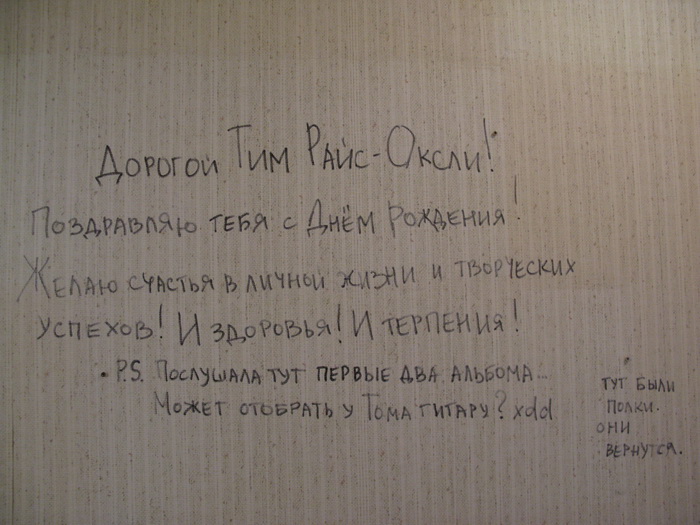 Дорогой Тим Райс-Оксли!
Поздравляю тебя с Днём Рождения!
Желаю счастья в личной жизни и творческих
успехов! И здоровья! И терпения!
• P.S. Послушала тут первые два альбома...
Может отобрать у Тома гитару? xdd
тут были
полки.
они
вернутся.